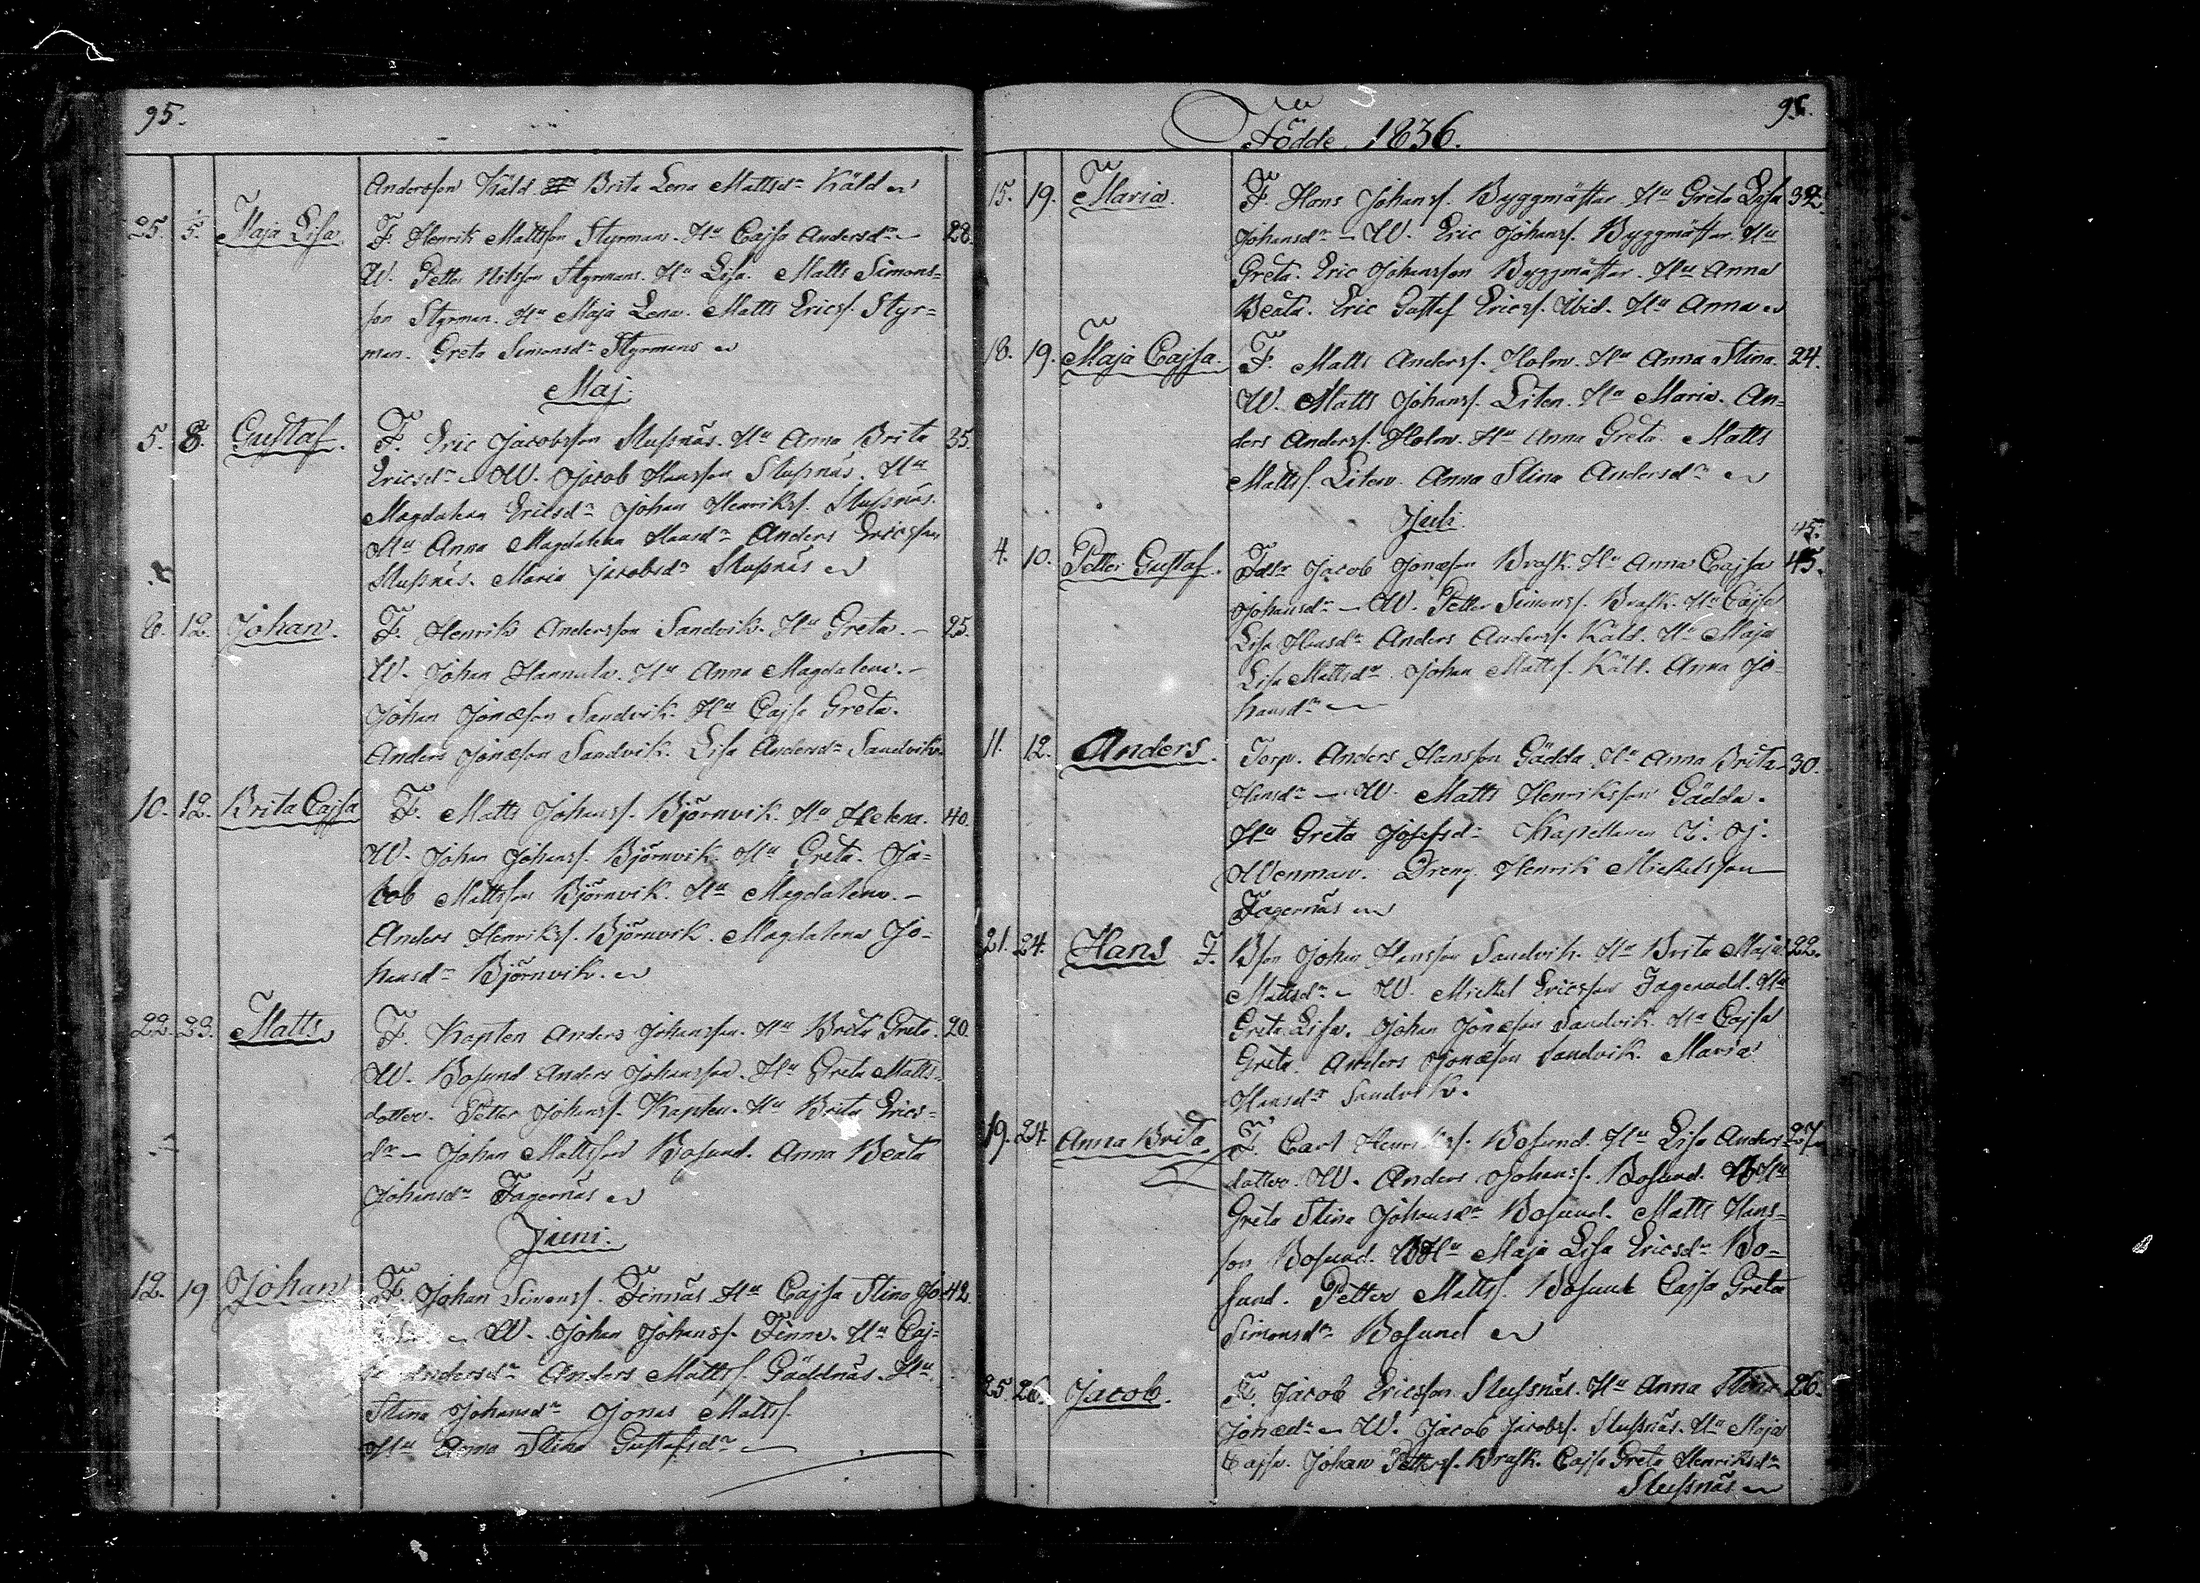 95.
Andersson Käld Brita Lena Mattsdr Käld
25. 5. Maja Lisa. F. Henrik Mattsson Styrmans. Hu Cajsa Andersdr 28.
W. Petter Nilsson Styrmans. Hu Lisa. Matts Simons-
son Styrman. Hu Maja Lena. Matts Ericss. Styr-
man. Greta Simonsdr Styrmans
Maj
5. 8. Gustaf. F. Eric Jacobsson Slussnäs. Hu Anna Brita 35.
Ericsdr W. Jacob Hansson Slussnäs. Hu
Magdalena Ericsdr Johan Henrikss. Slussnäs.
Hu Anna Magdalena Hansdr Anders Ericsson
Slussnäs. Maria Jacobsdr Slussnäs
6. 12. Johan. F. Henrik Andersson Sandvik. Hu Greta. 25.
W. Johan Hannula. Hu Anna Magdalena.
Johan Jonæson Sandvik. Hu Cajsa Greta.
Anders Jonæson Sandvik. Lisa Andersdr Sandvik.
10. 12. Brita Cajsa F. Matts Johanss. Björnvik. Hu Helena. 40.
W. Johan Johanss. Björnvik. Hu Greta. Ja-
cob Mattsson Björnvik. Hu Magdalena.
Anders Henrikss. Björnvik. Magdalena Jo-
hansdr Björnvik.
22. 23. Matts F. Kapten Anders Johansson. Hu Brita Greta. 20.
W. Bosund Anders Johansson. Hu Greta Matts-
dotter. Petter Johanss. Kapten. Hu Brita Erics-
dr Johan Mattsson Bosund. Anna Beata
Johansdr Fagernäs
Juni.
12. 19 Johan F. Johan Simonss. Finnäs. Hu Cajsa Stina Jo- 42.
W. Johan Johanss. Finne. Hu Caj-
Andersdr Anders Mattss. Gäddnäs. Hu
Stina Johansdr Jonas Mattss.
Hu Anna Stina Gustafsdr
Födde 1836.
95.
15. 19. Maria. F. Hans Johanss. Byggmästar. Hu Greta Lisa 32.
Johansdr W. Eric Johanss. Byggmästar. Hu
Greta. Eric Johansson Byggmästar. Hu Anna
Beata. Eric Gustaf Ericss. Ibid. Hu Anna
18. 19. Maja Cajsa. F. Matts Anderss. Holm. Hu Anna Stina. 24.
W. Matts Johanss. Liten. Hu Maria. An-
ders Anderss. Holm. Hu Anna Greta. Matts
Mattss. Liten. Anna Stina Andersdr
Juli.
45.
4. 10. Petter Gustaf. Jacob Jonæson Brask. Hu Anna Cajsa 45.
Johansdr W. Petter Simonss. Brask. Hu Cajsa
Lisa Hansdr Anders Anderss. Käld. Hu Maja
Lisa Mattsdr Johan Mattss. Käld. Anna Jo-
hansdr
11. 12. Anders. Torp. Anders Hansson Gädda Hu Anna Brita 30.
Hansdr W. Matts Henriksson Gädda.
Hu Greta Josefsdr Kapellanen J.
Wenman. Dreng Henrik Mickelsson
Fagernäs
21. 24. Hans F. Bson Johan Hansson Sandvik. Hu Brita Maja 22.
Mattsdr W. Mickel Ericsson Fagerudd. Hu
Greta Lisa. Johan Jonæson Sandvik. Hu Cajsa
Greta. Anders Jonæson Sandvik. Maria
Hansdr Sandvik.
19. 24. Anna Brita. F. Carl Henrikss. Bosund. Hu Lisa Anders- 27.
dotter. W. Anders Johanss. Bosund. Hu
Greta Stina Johansdr Bosund. Matts Hans-
son Bosund. Hu Maja Lisa Ericsdr Bo-
sund. Petter Mattss. Bosund Cajsa Greta
Simonsdr Bosund
25. 26. Jacob. F. Jacob Ericsson Slussnäs. Hu Anna Stina 26.
Jonædr W. Jacob Jacobss. Slussnäs. Hu Maja
Cajsa. Johan Petterss. Brask. Cajsa Greta Henriksdr
Slussnäs